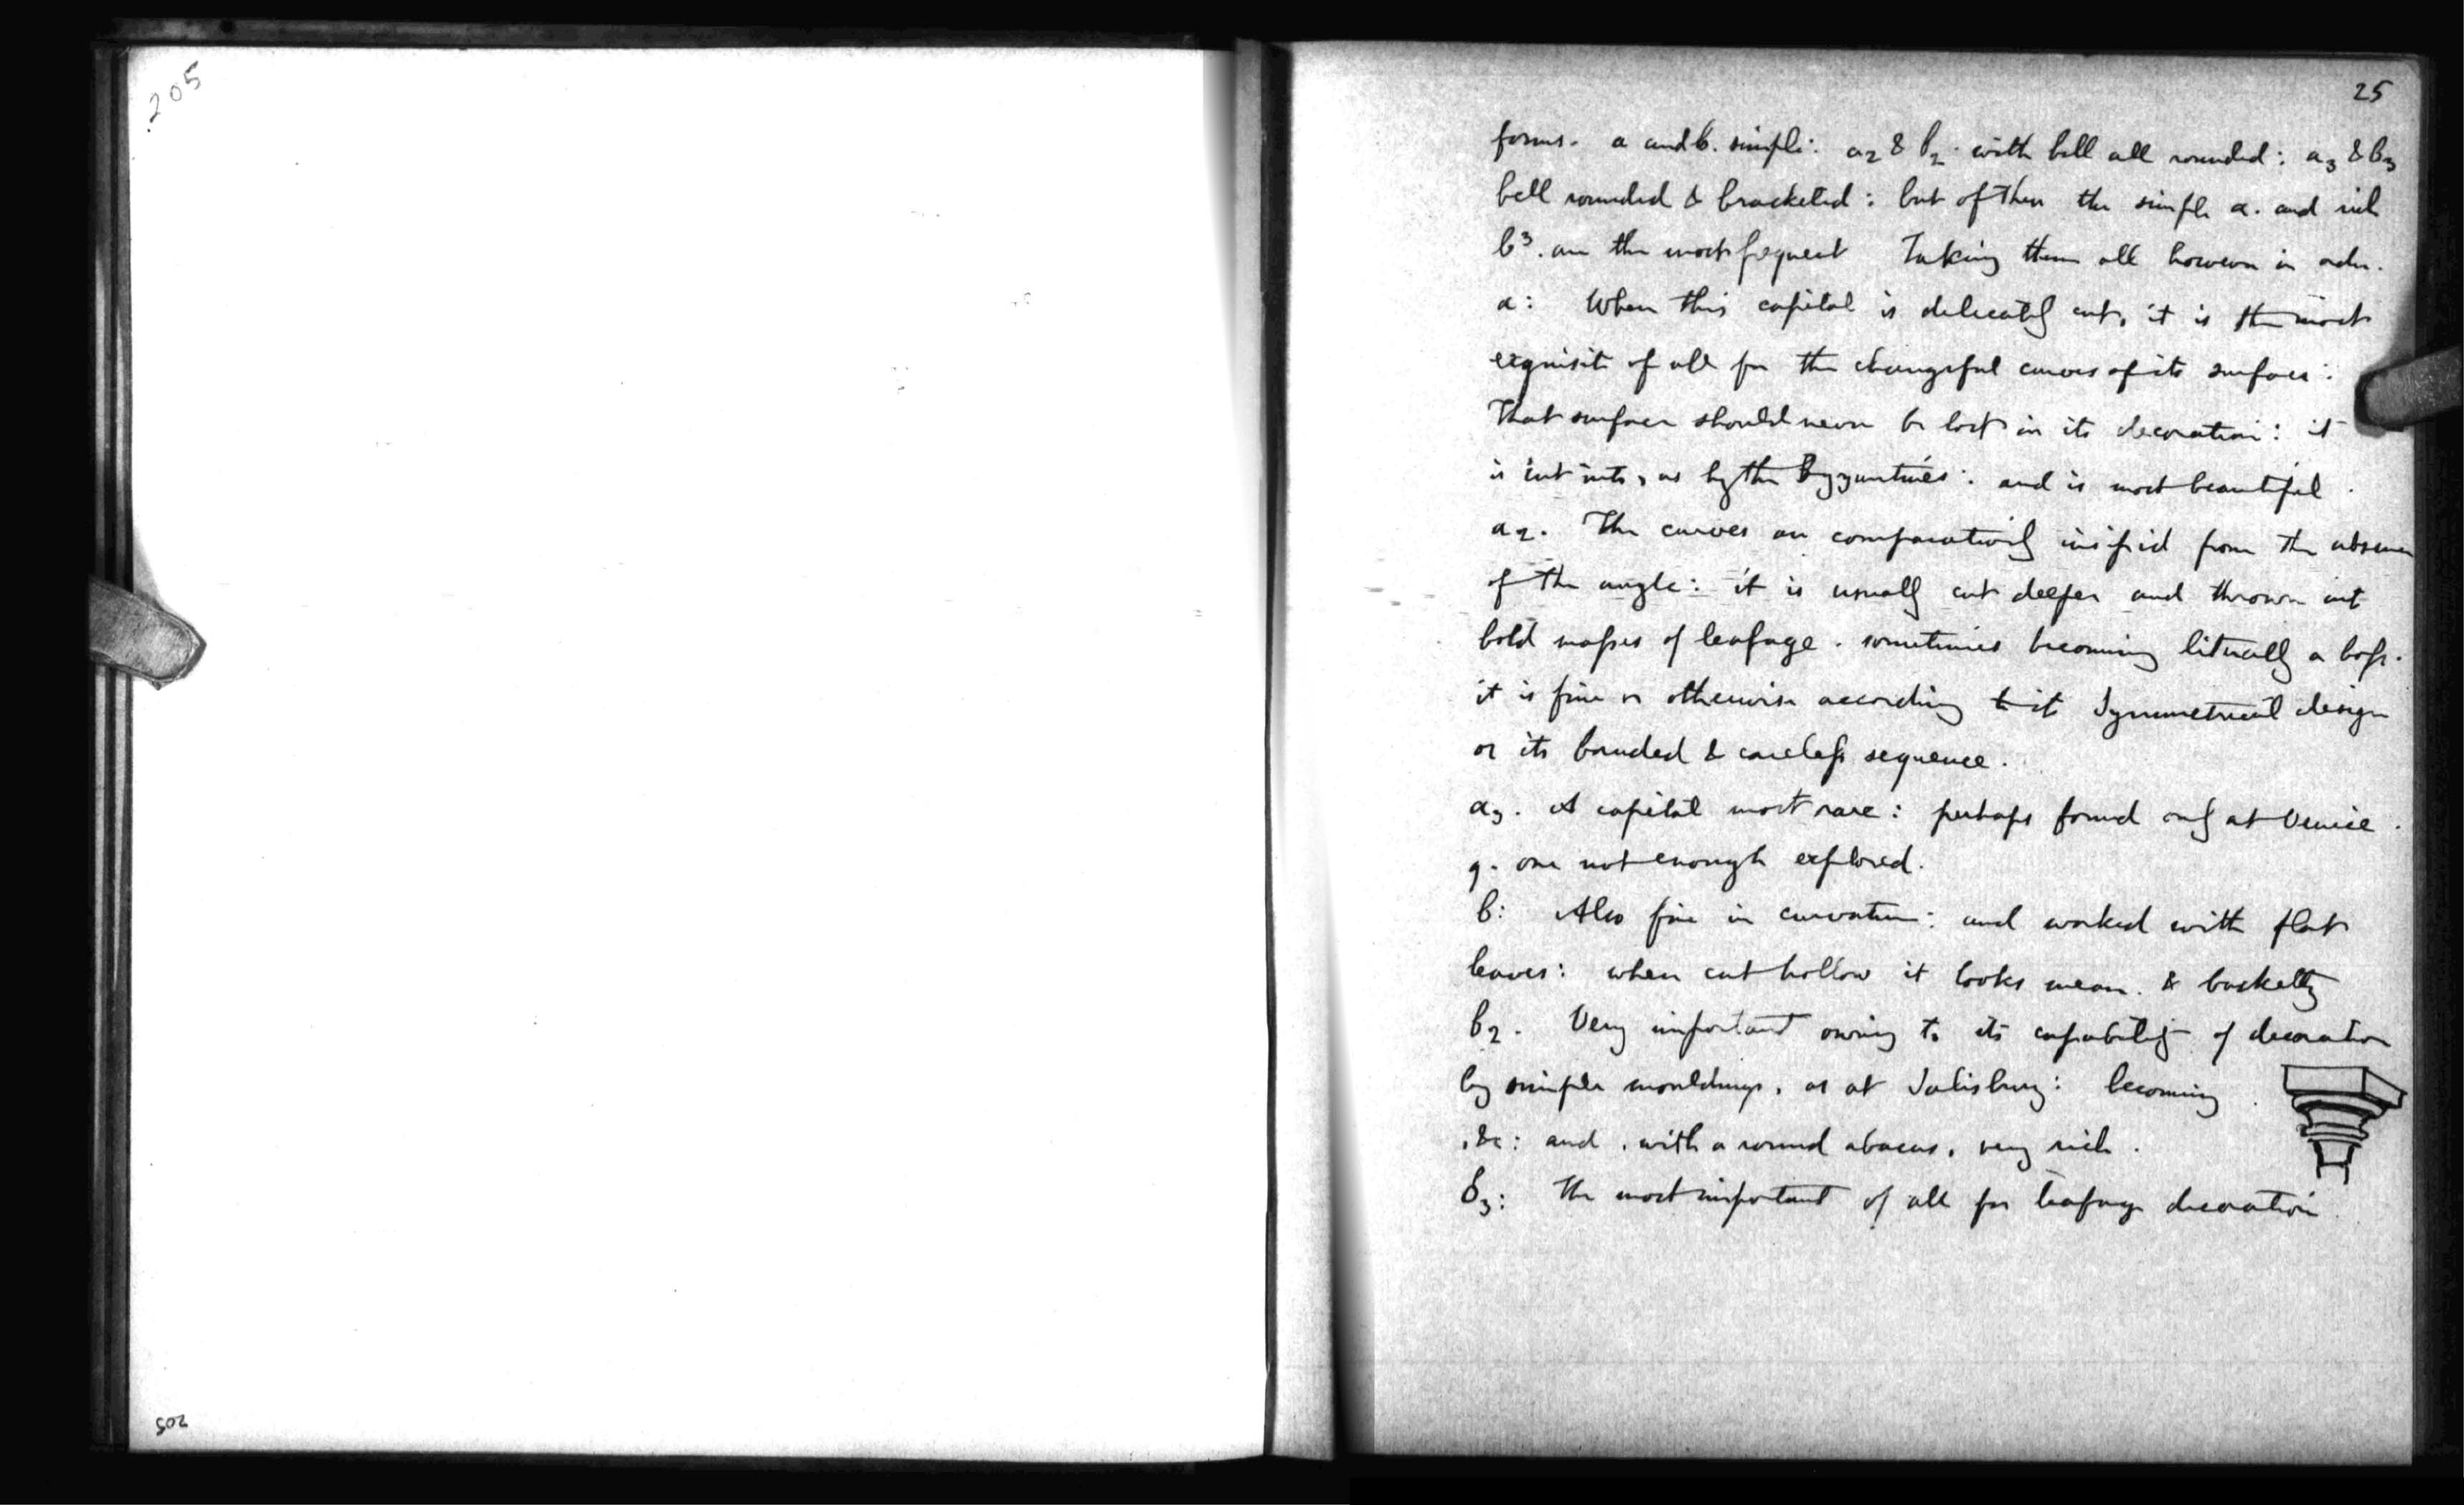 205
205
25
forms. a and b. simple: a2 & b2. with bell all rounded: a3 & b3
bell rounded & bracketed: but of them the simple a. and rich
b3. are the most frequent Taking them all however in order.
a: When this capital is delicately cut, it is the most
exquisite of all for the changeful curves of its surface:
That surface should never be lost in its decoration: it
is cut into, as by the Byzantines: and is most beautiful.
a2. The curves are comparatively insipid from the absence
of the angle: it is usually cut deeper and thrown out
bold masses of leafage. sometimes becoming literally a boss.
it is fine or otherwise according to it Symmetrical design
or its banded & careless sequence.
a3. A capital most rare: perhaps found only at Venice.
q. one not enough explored.
b: Also fine in curvature: and worked with flat
leaves: when cut hollow it looks mean. & basketty
b2. Very important owing to its capability of decoration
by simple mouldings, as at Salisbury: becoming
, &c: and, with a round abacus, very rich.
b3: The most important of all for leafage decoration